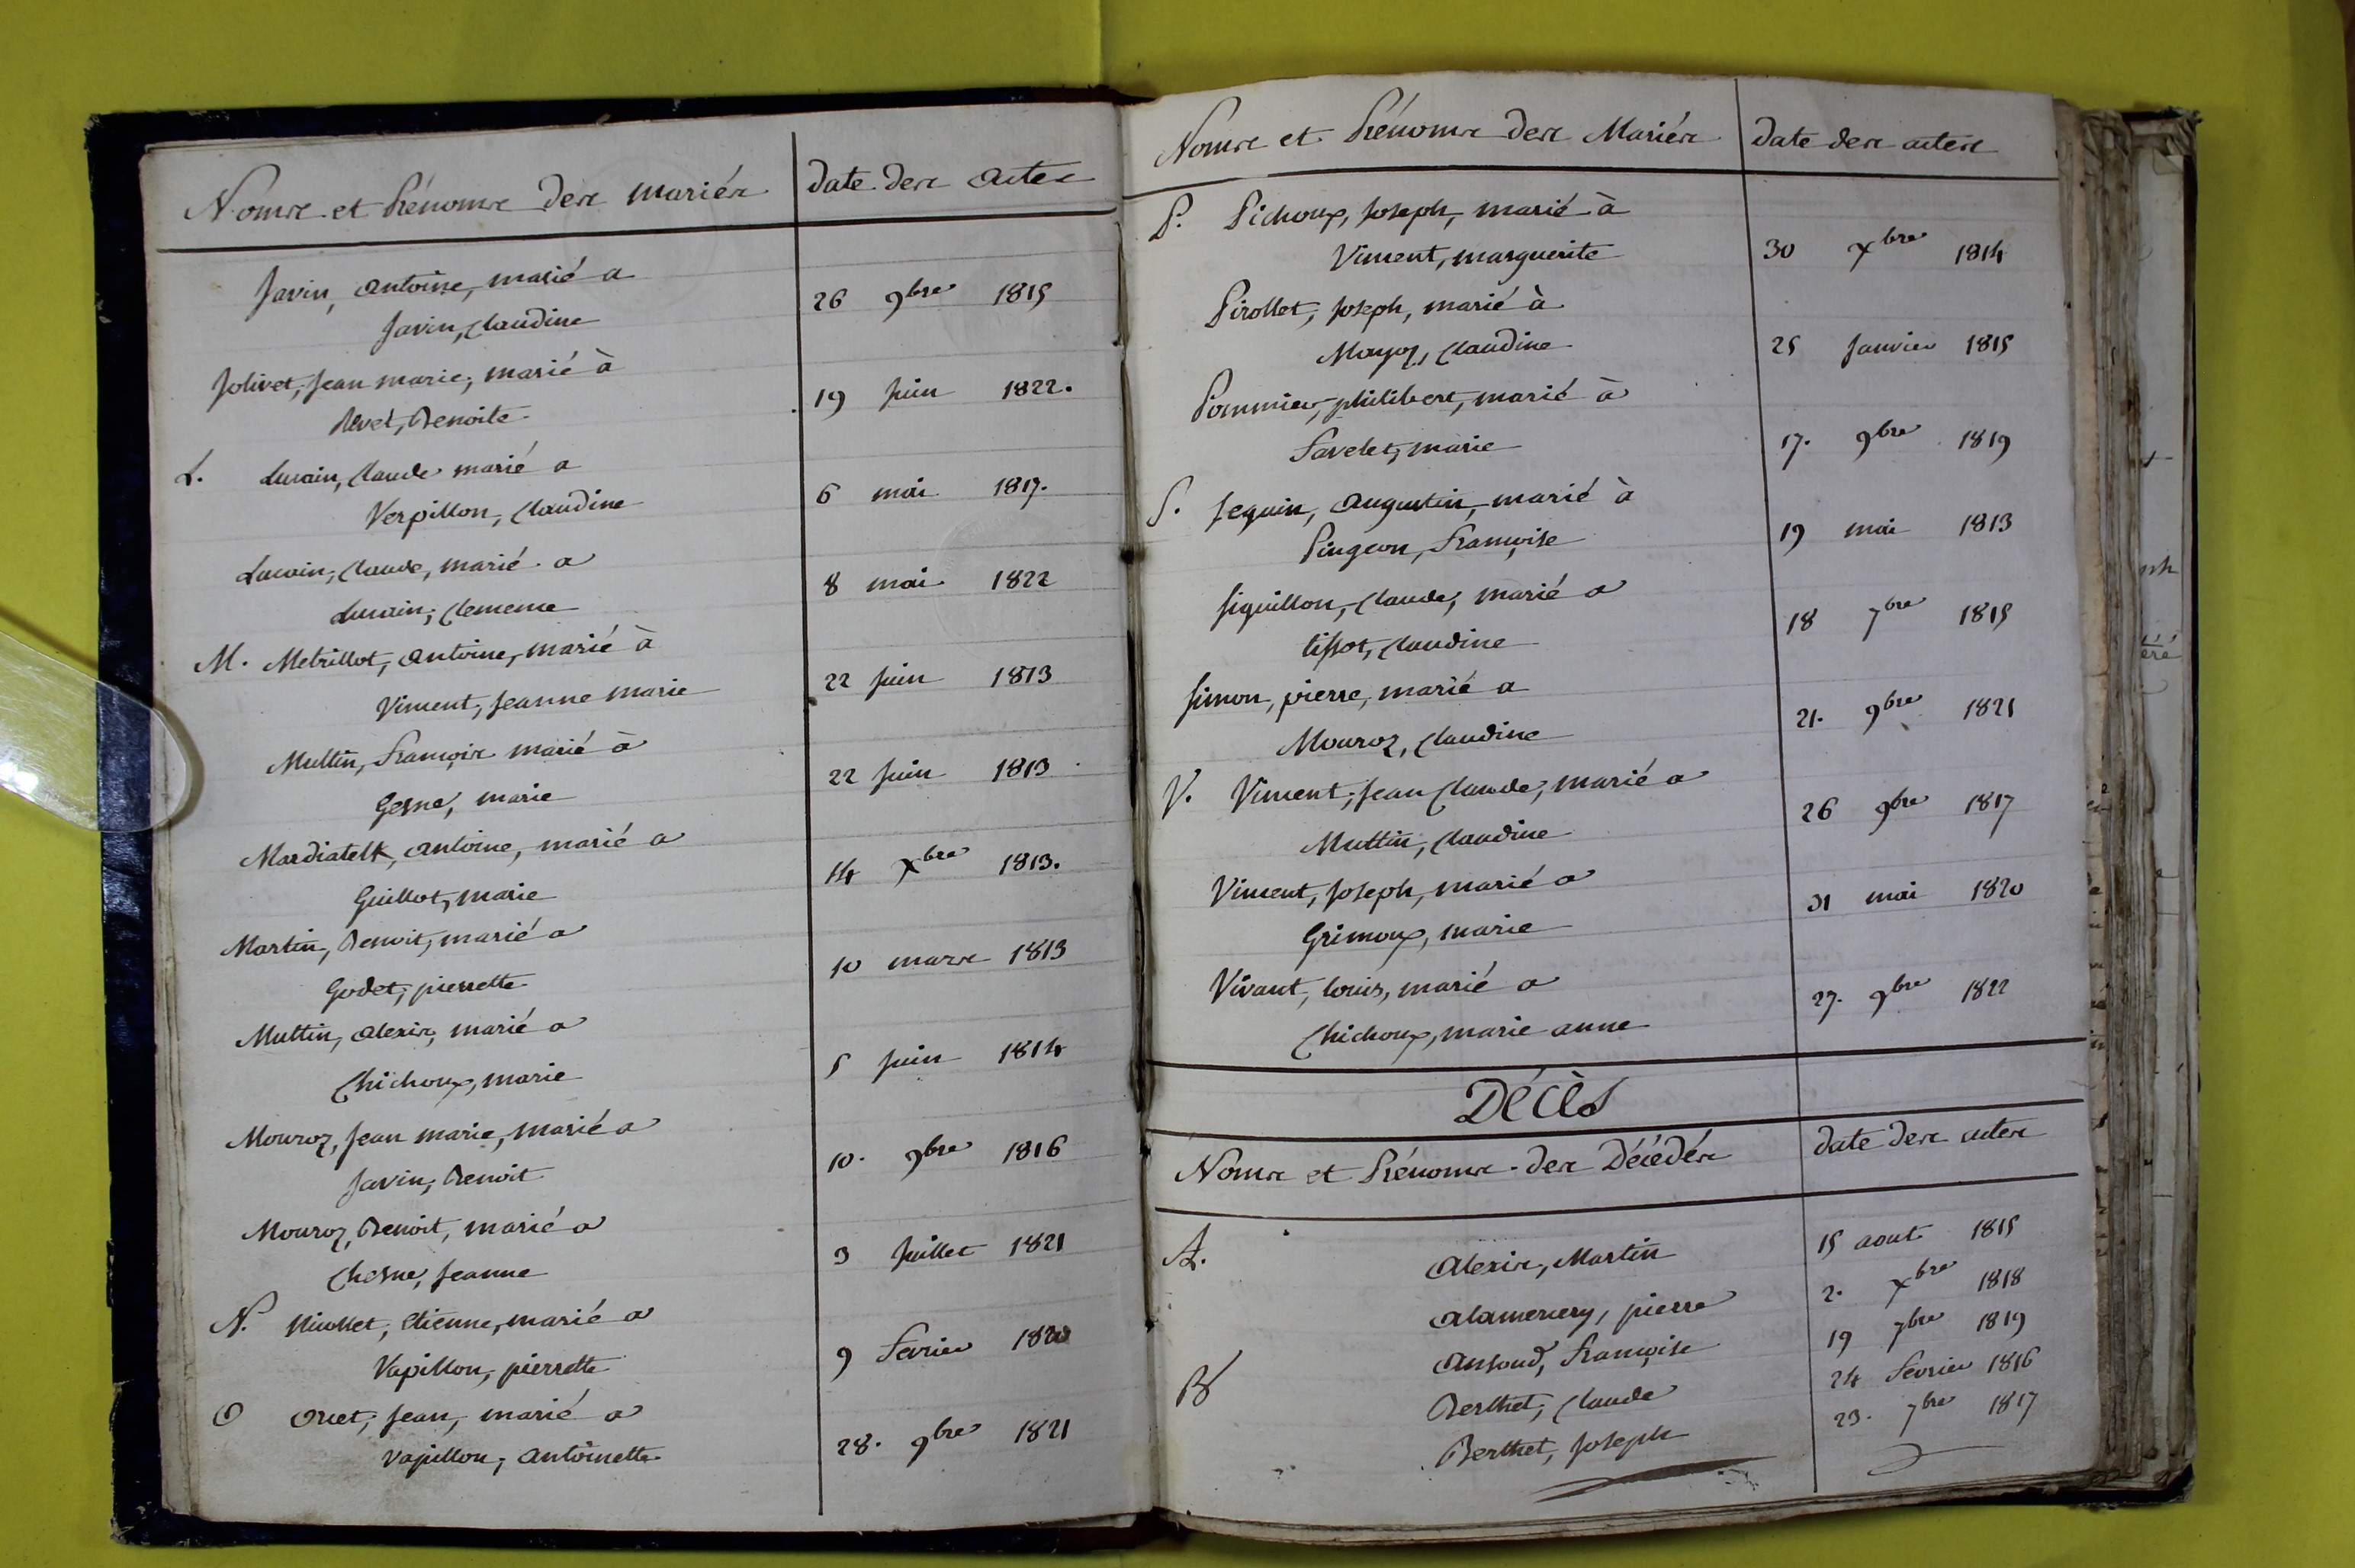 Noms et Prénoms des mariés date des actes
Javin, antoine, marié a
Javin, Claudine 26 9bre 1815
Jolivet, Jean marie, marié à
Revet, Benoite 19 Juin 1822.
L. Luvain, Claude marié a
Verpillon, Claudine 6 mai 1817.
Luvain, Claude, marié a
Luvain, Clemence 8 mai 1822
M. Metrillot, antoine, marié à
Vincent, Jeanne marie 22 Juin 1813
Muttin, François marié à
Gesne, marie 22 Juin 1813
antoine, marié a
Guillot, marie 14 Xbre 1813.
Martin, Benoit, marié a
Godet, pierrette 10 mars 1813
Muttin, alexis, marié a
Chichoux, marie 5 Juin 1814
Mouroz, Jean marie, marié a
Javin, Benoit 10. 9bre 1816
Mouroz, Benoit, marié a
Chesne, Jeanne 3 Juillet 1821
N. Nicollet, Etienne, marié a
Vapillon, pierrette 9 Fevrier 1820
O Orcet, Jean, marié a
Vapillon, antoinette 28. 9bre 1821
Noms et Prénoms des Mariés date des actes
P. Pichoux, Joseph, marié à
Vincent, marguerite 30 Xbre 1814
Pirollet, Joseph, marié à
Moyoz, Claudine 25 Janvier 1815
Pommier, philibert, marié à
Favelet, marie 17. 9bre 1819
S. Seguin, augustin, marié à
Pingeon, Françoise 19 mai 1813
Siguillon, Claude, marié a
tissot, Claudine 18 7bre 1815
Simon, pierre, marié a
Mouroz, Claudine 21. 9bre 1821
V. Vincent, Jean Claude, marié a
Muttin, Claudine 26 9bre 1817
Vincent, Joseph, marié a
Grimoux, marie 31 mai 1820
Vivant, louis, marié a
Chichoux, marie anne 27. 9bre 1822
Décès
Noms et Prénoms des Décédés date des actes
A. alexis, Martin 15 aout 1815
alamercery, pierre 2. Xbre 1818
ansoud, françoise 19 7bre 1819
B Berthet, Claude 24 Fevrier 1816
Berthet, Joseph 23. 7bre 1817